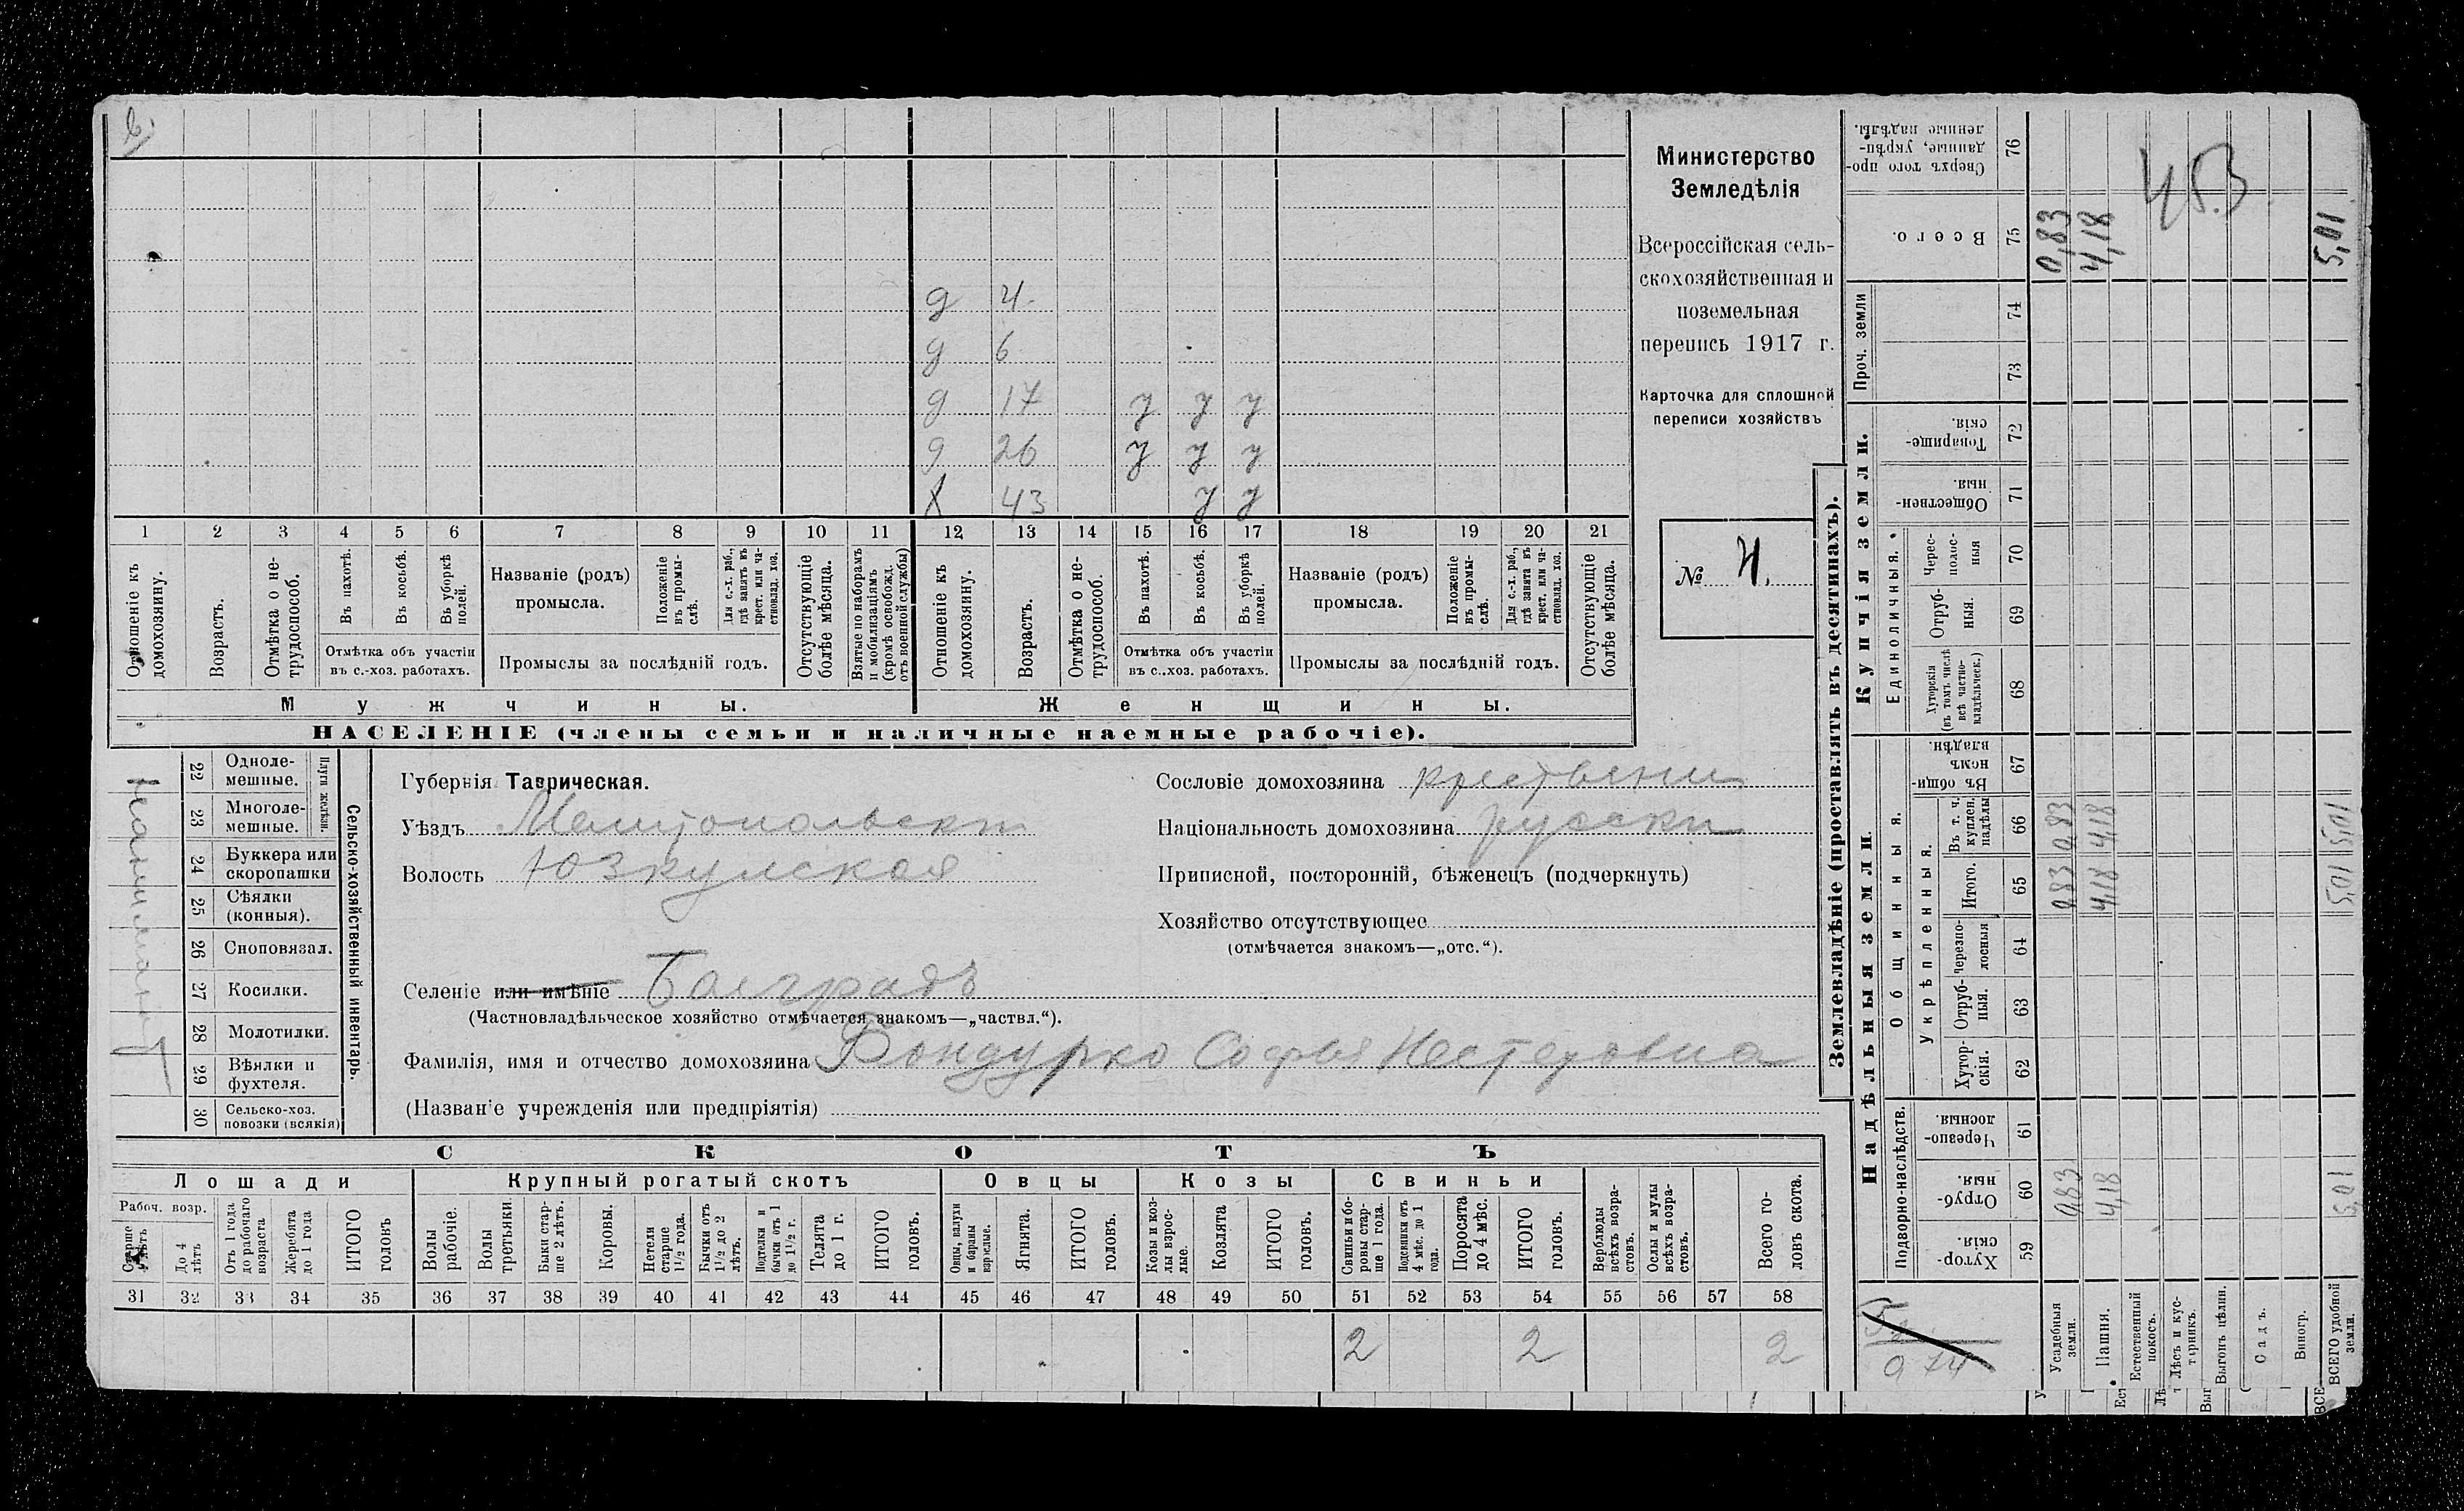 Министерство
Земледѣлія
Всероссійская сель-
скохозяйственная и
поземельная
перепись 1917 г.
Карточка для сплошной
переписи хозяйствъ
№ 4.
д 4
д 6
д 17 у у у
д 26 у у у
х 43 у у
1 2 3 4 5 6 7 8 9 10 11 12 13 14 15 16 17 18 19 20 21
Отношеніе къ домохозяину.
Возрастъ.
Отмѣтка о не-трудоспособ.
Въ пахотѣ.
Въ косьбѣ.
Въ уборкѣ полей.
Отмѣтка объ участіи въ с.-хоз. работахъ.
Названіе (родъ) промысла.
Положеніе въ промы-слѣ.
Для с.-х. раб., гдѣ занятъ въ крест. или ча-стновлад. хоз.
Промыслы за послѣдній годъ.
Отсутствующіе болѣе мѣсяца.
Взятые по наборамъ и мобилизаціямъ (кромѣ освобожд. отъ военной службы)
Отношеніе къ домохозяину.
Возрастъ.
Отмѣтка о не-трудоспособ.
Въ пахотѣ.
Въ косьбѣ.
Въ уборкѣ полей.
Отмѣтка объ участіи въ с.-хоз. работахъ.
Названіе (родъ) промысла.
Положеніе въ промы-слѣ.
Для с.-х. раб., гдѣ занята въ крест. или ча-стновлад. хоз.
Промыслы за послѣдній годъ.
Отсутствующіе болѣе мѣсяца.
Мужчины. Женщины.
НАСЕЛЕНІЕ (члены семьи и наличные наемные рабочіе).
Сельско-хозяйственный инвентарь.
Плуги желѣзн.
22 Одноле-мешные.
23 Многоле-мешные.
24 Буккера или скоропашки
25 Сѣялки (конныя).
26 Сноповязал.
27 Косилки.
28 Молотилки.
29 Вѣялки и фухтеля.
30 Сельско-хоз. повозки (всякія)
Губернія Таврическая.
Уѣздъ Мелитопольски
Волость Юзкуйская
Селеніе или имѣніе Баеградъ
(Частновладѣльческое хозяйство отмѣчается знакомъ—„частвл.“).
Фамилія, имя и отчество домохозяина Бондурко Софья Нестеровна
(Названіе учрежденія или предпріятія)
Сословіе домохозяина крестьянин
Національность домохозяина русски
Приписной, посторонній, бѣженецъ (подчеркнуть)
Хозяйство отсутствующее
(отмѣчается знакомъ—„отс.“).
СКОТЪ
Лошади Крупный рогатый скотъ Овцы Козы Свиньи
Рабоч. возр.
Старше 4 лѣтъ
До 4 лѣтъ
Отъ 1 года до рабочаго возраста
Жеребята до 1 года
ИТОГО головъ
Волы рабочіе.
Волы третьяки
Быки стар-ше 2 лѣтъ.
Коровы.
Нетели старше 1½ года.
Бычки отъ 1½ до 2 лѣтъ.
Подтелки и бычки отъ 1 до 1½ г.
Телята до 1 г.
ИТОГО головъ.
Овцы, валухи и бараны взрослые.
Ягнята.
ИТОГО головъ.
Козы и коз-лы взрос-лые.
Козлята
ИТОГО головъ.
Свиньи и бо-ровы стар-ше 1 года.
Подсвинки отъ 4 мѣс. до 1 года.
Поросята до 4 мѣс.
ИТОГО головъ.
Верблюды всѣхъ возра-стовъ.
Ослы и мулы всѣхъ возра-стовъ.
Всего го-ловъ скота.
31 32 33 34 35 36 37 38 39 40 41 42 43 44 45 46 47 48 49 50 51 52 53 54 55 56 57 58
2 2 2
Землевладѣніе (проставлять въ десятинахъ).
Надѣльныя земли
Купчія земли.
Проч. земли
Подворно-наслѣдств.
Общинныя.
Укрѣпленныя.
Единоличныя.
Хутор-скія. 59
Отруб-ныя. 60
Черезпо-лосныя 61
Хутор-скія. 62
Отруб-ныя. 63
Черезпо-лосныя 64
Итого. 65
Въ т. ч. куплен. надѣлы 66
Въ общи-номъ владѣн. 67
Хуторскія (въ томъ числѣ всѣ частно-владѣльческ.) 68
Отруб-ныя. 69
Черес-полос-ныя 70
Обществен-ныя. 71
Товарище-скія. 72
73
74
Всего. 75
Сверхъ того про-данные, укрѣп-ленные надѣлы. 76
Усадебныя земли. 0,83 0,83 0,83 0,83
Пашня. 4,18 4,18 4,18 4,18
Естественный покосъ.
Лѣсъ и кус-тарникъ.
Выгонъ цѣлин.
Садъ.
Виногр.
ВСЕГО удобной земли. 5,01 5,01 5,01 5,01
453